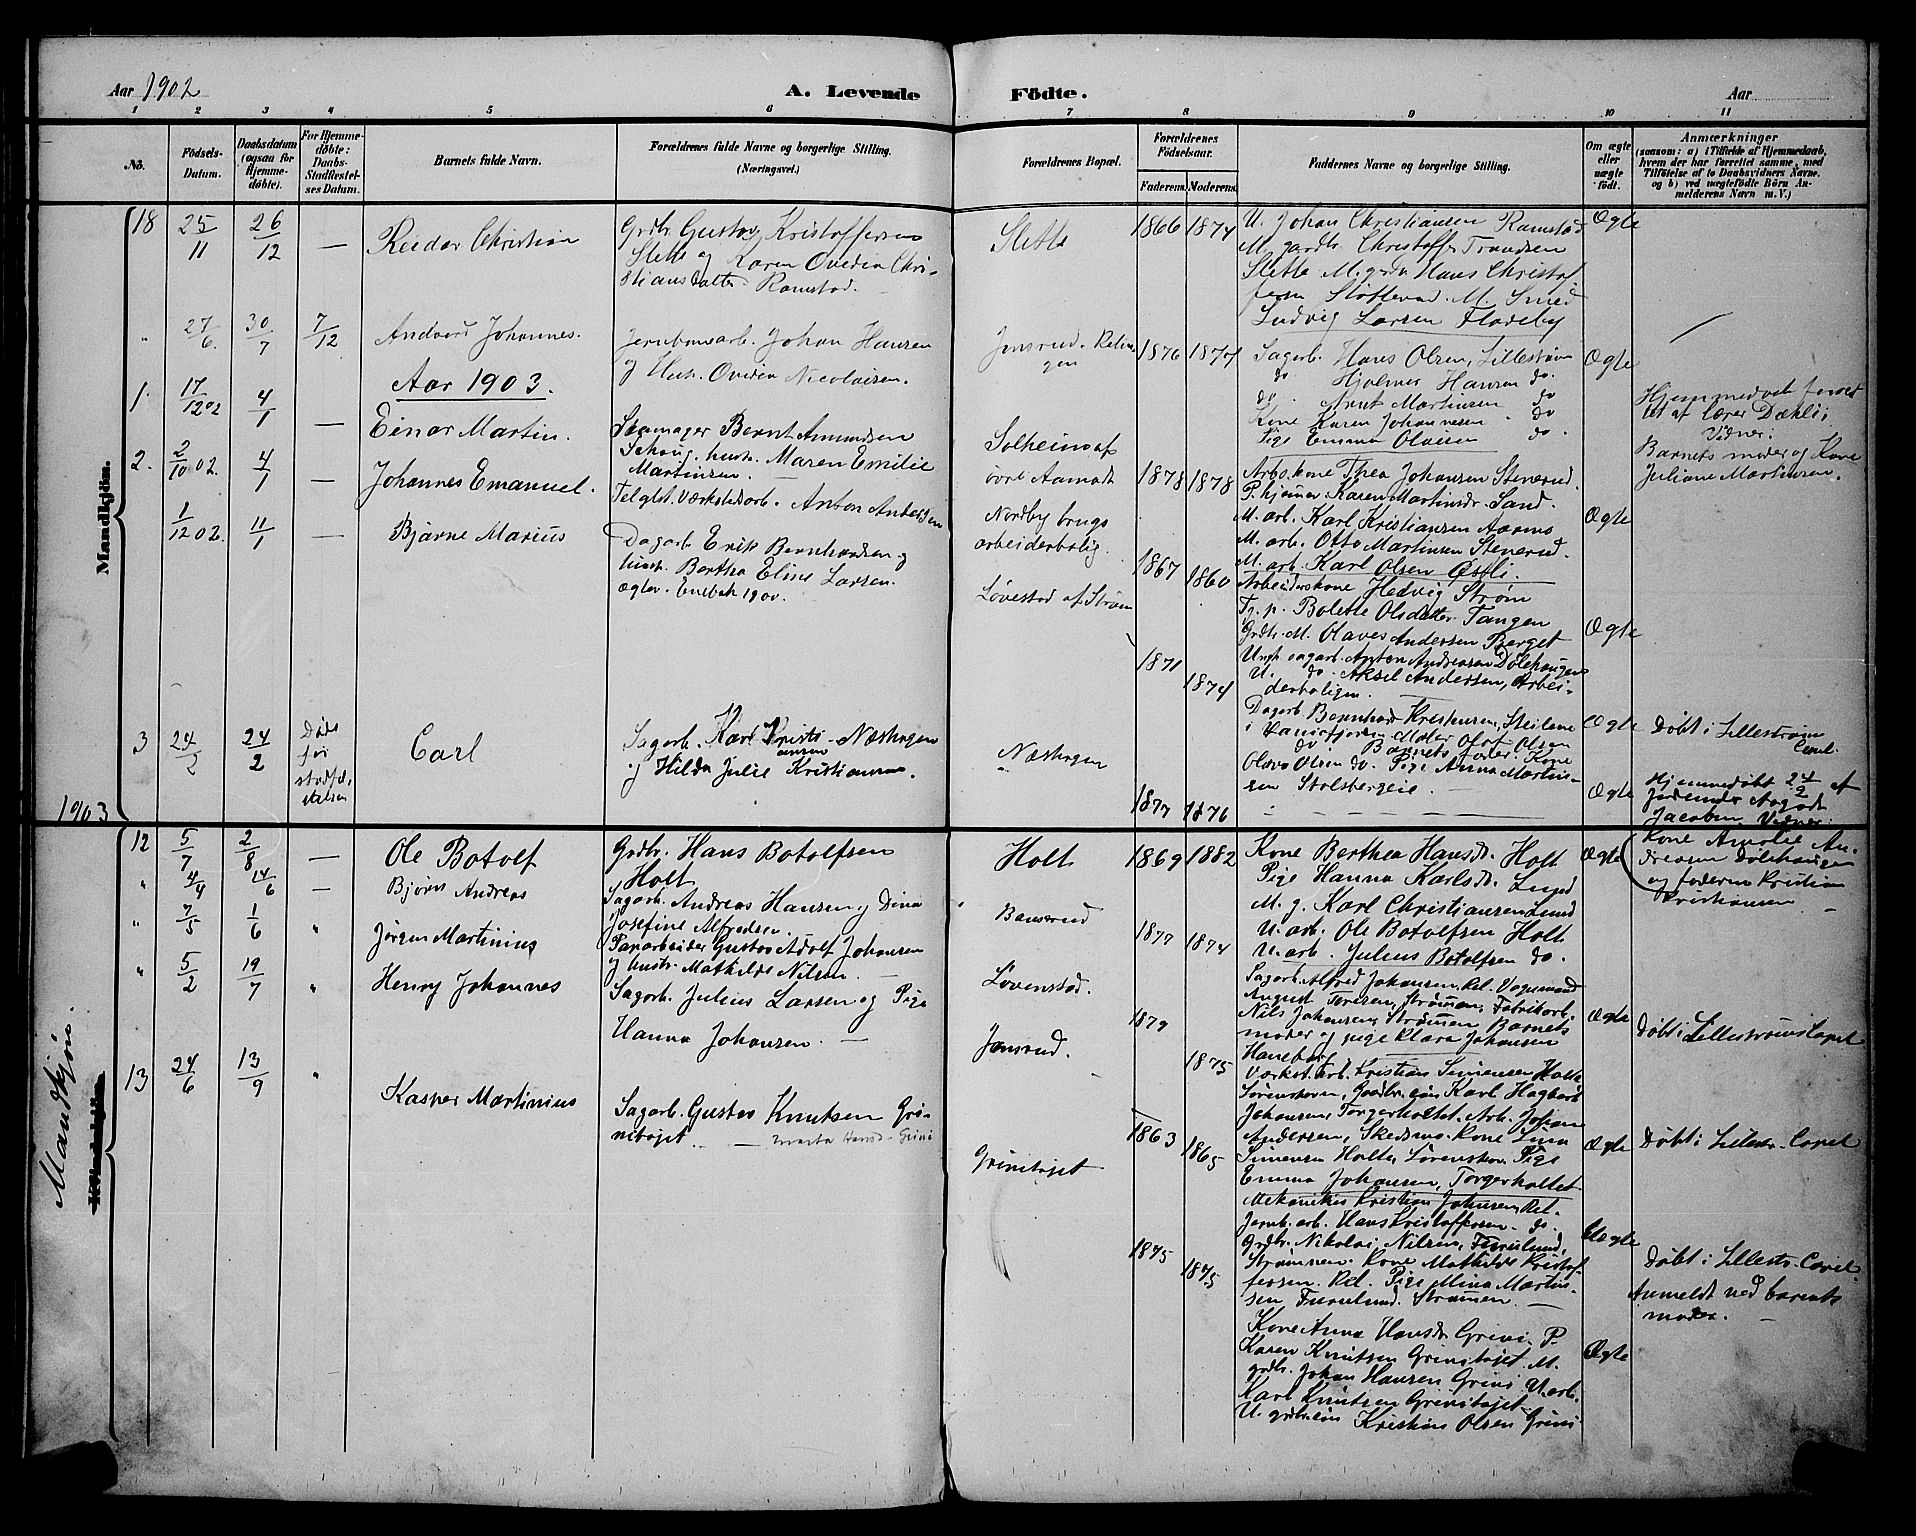 Aar 1902
A. Levende
Födte.
Aar
1 2 3 4 5 6 7 8 9 10 11
No.
Födsels-
Datum.
Daabsdatum
(ogsaa for
Hjemme-
döbte).
For Hjemme-
döbte:
Daabs-
Stadfæstel-
ses Datum.
Barnets fulde Navn.
Forældrenes fulde Navne og borgerlige Stilling.
(Næringsvei.)
Forældrenes Bopæl.
Forældrenes
Födselsaar.
Faderens. Moderens.
Faddernes Navne og borgerlige Stilling.
Om ægte
eller
uægte
födt.
Anmærkninger
(saasom: a) i Tilfælde af Hjemmedaab,
hvem der har forrettet samme, med
Tilföielse af to Daabsvidners Navne.
og b) ved uægtefödte Börn An-
melderens Navn m. V.)
Mandkjön.
18 25/11 26/12 — Reidar Christian
Grdbr. Gustav Kristoffersen
Slette og Karen Ovedia Chri-
stiansdatter Ramstad.
Slette
1866 1874
U. Johan Christiansen Ramstad
M. gardbr. Christoffer Trondsen
Slette M. grdr Hans Christof
fersen M. Smed
Ludvig Larsen Fladeby
Ægte
" 27/6 30/7 7/12 Johannes.
Jernbanearb. Johan Hansen
og Hust. Ovedia Nicolaisen.
Jonsrud. Relin
gen
1876 1877
Sagarb. Hans Olsen, Lillestrøm
do Hjalmar Hansen do.
do Arnt Martinsen do
Kone Karen Johannesen do
Pige Emma Olaisen do.
Ægte
Aar 1903.
1. 17/12 02 4/1 — Einar Martin.
Skomager Bernt Amundsen
Schoug, hust. Maren Emilie
Martinsen. —
Solheim af
øvre Aamodt
1878 1878
Arb.kone Thea Johansen Stenerud.
P. hjemme Karen Martinsdr. Sand.
M. arb. Karl Kristiansen
M. arb. Otto Martinsen Stenerud.
M. arb. Karl Olsen Østli.
Ægte
Hjemmedøbt
til af lærer Dæhli;
Vidner:
Barnets moder og Kone
Juliane Martinsen.
2. 2/10 02. 4/1 — Johannes Emanuel.
Teglst. Værkstedsarb. Anton Andersen
Nordby brugs
arbeiderbolig.
1867 1860
Arbeiderskone Hedvig Strøm
Tj. p. Bolette Olsdatter Tangen
Grdbr. M. Olaves Andersen Berget
Ungk. sagarb. Anton Andreasen Dølehaugen
U. do. Aksel Andersen, Arbei-
derboligen.
Ægte
1/12 02. 11/1 — Bjarne Marius
Dagarb. Erik Bernhardsen og
hust. Bertha Eline Larsen.
Ægtev. Enebak 1900.
Løvestad af Strøm
1871 1874
Dagarb. Bernhard Kristiansen, Steilene
Barnets fader. Kone
Olava Olsen do. Pige Anna Martin-
sen Stolsbergeie. —
Ægte
Døbt i Lillestrøm
Capel.
3 24/2 24/2
Død
før
stadfæ-
stelsen
Carl
Sagarb. Karl Kristi- Næshagen
ansen
og Hilda Julie Kristiansen.
Næshagen
1877 1876
Ægte
Hjemmedøbt 24/2 af
Jordemoder Aagodt
Jacobsen Vidner:
Kone Amalie An-
dreasen Dølehaugen
og faderen Kristian
Kristiansen
1903
Mandkjøn.
Kvindekjön.
12 5/7 2/8 — Ole Botolf
Grdbr. Hans Botolfsen
Holt
Holt
1869 1882
Kone Berthea Hansdr. Holt
Pige Hanna Karlsdr. Lund
M. g. Karl Christiansen Lund
U. arb. Ole Botolfsen Holt
U. arb. Julius Botolfsen do.
Ægte
" 4/4 14/6 — Bjørn Andreas
Sagarb. Andreas Hansen og Dina
Josefine Alfredsen.
Banserud
1877 1874
Sagarb. Alfred Johansen, Rel. Vogsmand
August Toresen, Strømmen, Fabrikarb.
Nils Johansen, Strømmen Barnets
moder og pige Klara Johansen
Haneborg
Ægte
Døbt i Lillestrøms Capel
" 7/5 1/6 " Jørgen Martinius
Papirarbeider Gustav Adolf Johansen
og hustr. Mathilde Nilsen. —
Løvenstad.
1879 1875
Værkst.arb. Kristian Simensen Holt
Sørenshoven, Gaardbr.søn Karl Hagbart
Johansen, Torgerholtet. Arb. Johan
Andersen, Skedsmo. Kone Lina
Simensen Holt, Sørenshov. Pige
Emma Johansen, Torgerholtet
Ægte
Døbt i Lillestr. Capel
" 5/2 19/7 " Henry Johannes
Sagarb. Julius Larsen og Pige
Hanna Johansen. —
Jonsrud.
1863 1865
Mekaniker Kristian Johansen, Rel.
Jernb.arb. Hans Kristoffersen. do.
Grdbr. Nikolai Nilsen, Furulund,
Strømmen. Kone Mathilde Kristof
fersen. Rel. Pige Mina Martin-
sen Furulund. Strømmen. —
Uægte
Døbt i Lillestr. Capel.
Anmeldt ved barnets
moder. —
13 24/6 13/9 " Kasper Martinius
Sagarb. Gustav Knutsen Gri-
nitajet. — Marta Hansd. Grini
Grinitajet
1875 1875
Kone Anna Hansdr Grini, P.
Karen Knutsen Grinitajet. M.
grdbr. Johan Hansen Grini. U. arb.
Karl Knutsen Grinitajet.
U. grdbr.søn Kristian Olsen Grini
Ægte